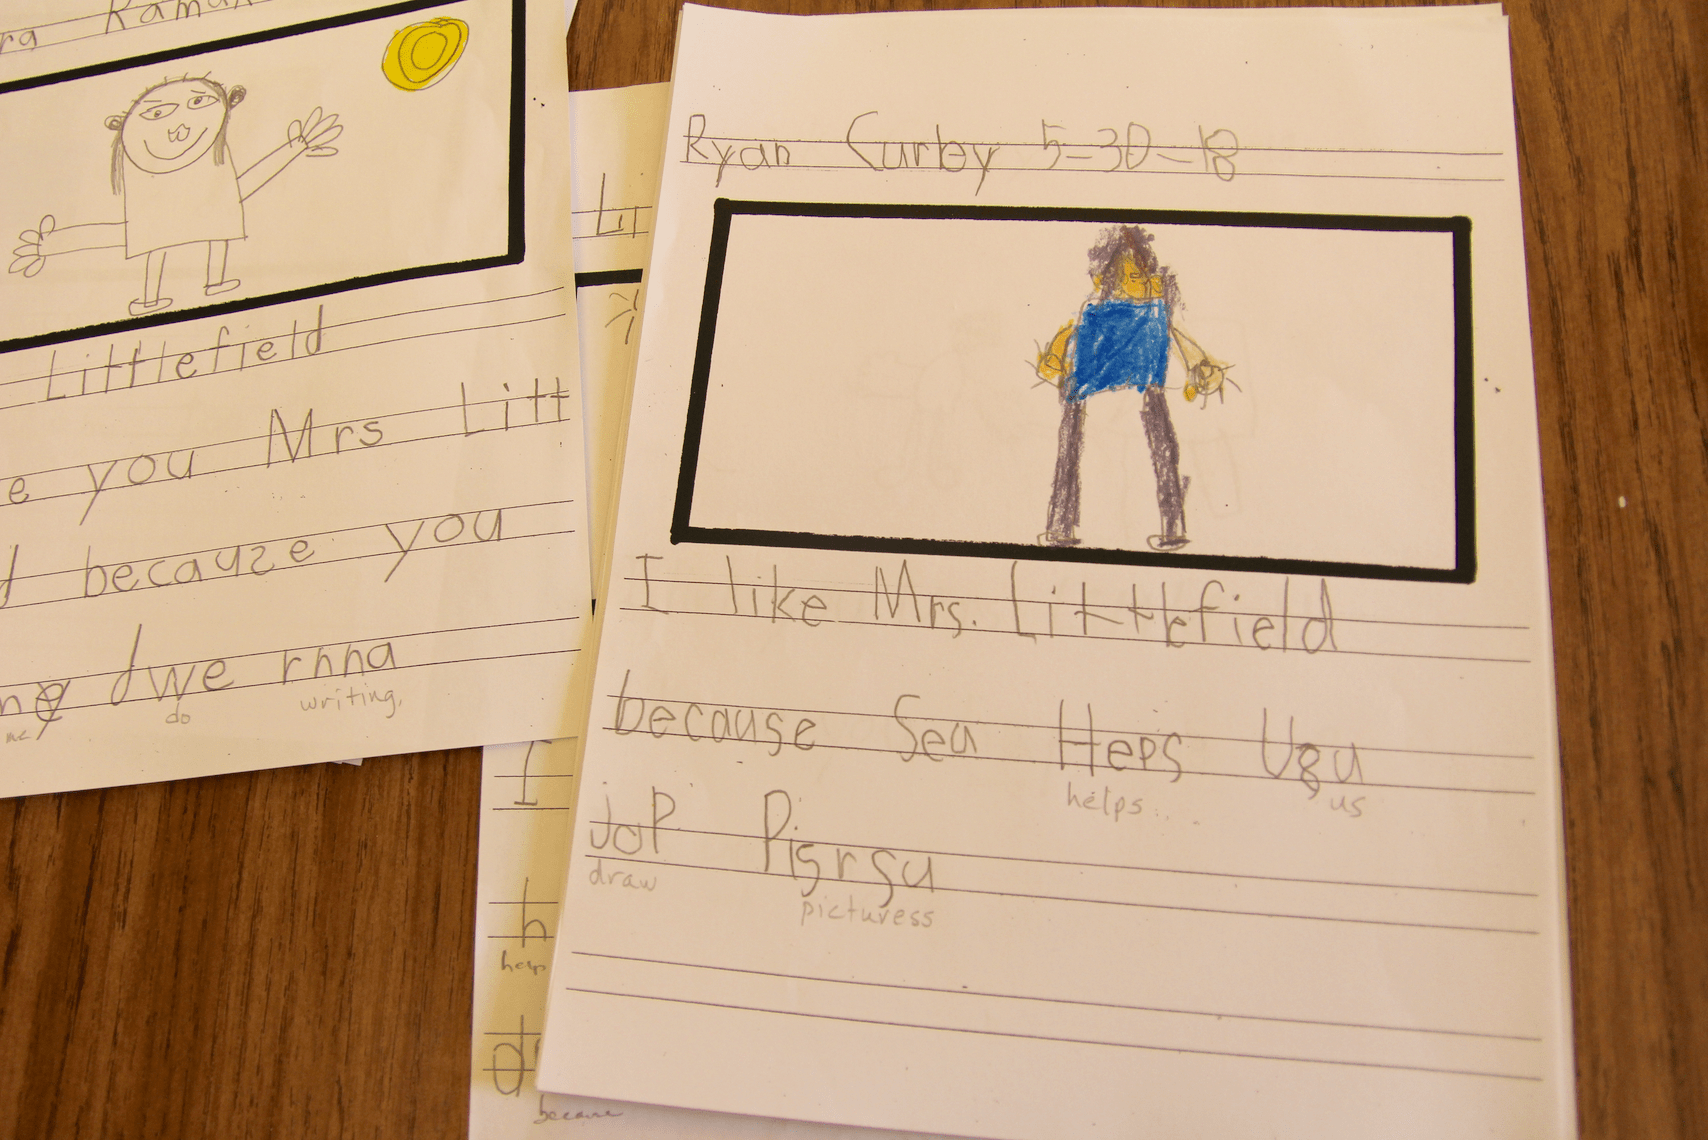 Littlefield
e you Mrs Litt
becauze you
dwe rnna
me do writing.
Li
help
because
Ryan Curby 5-30-18
I like Mrs. Littlefield
because Sea Heps Ugu
helps us
joP Pisrsu
draw picturess